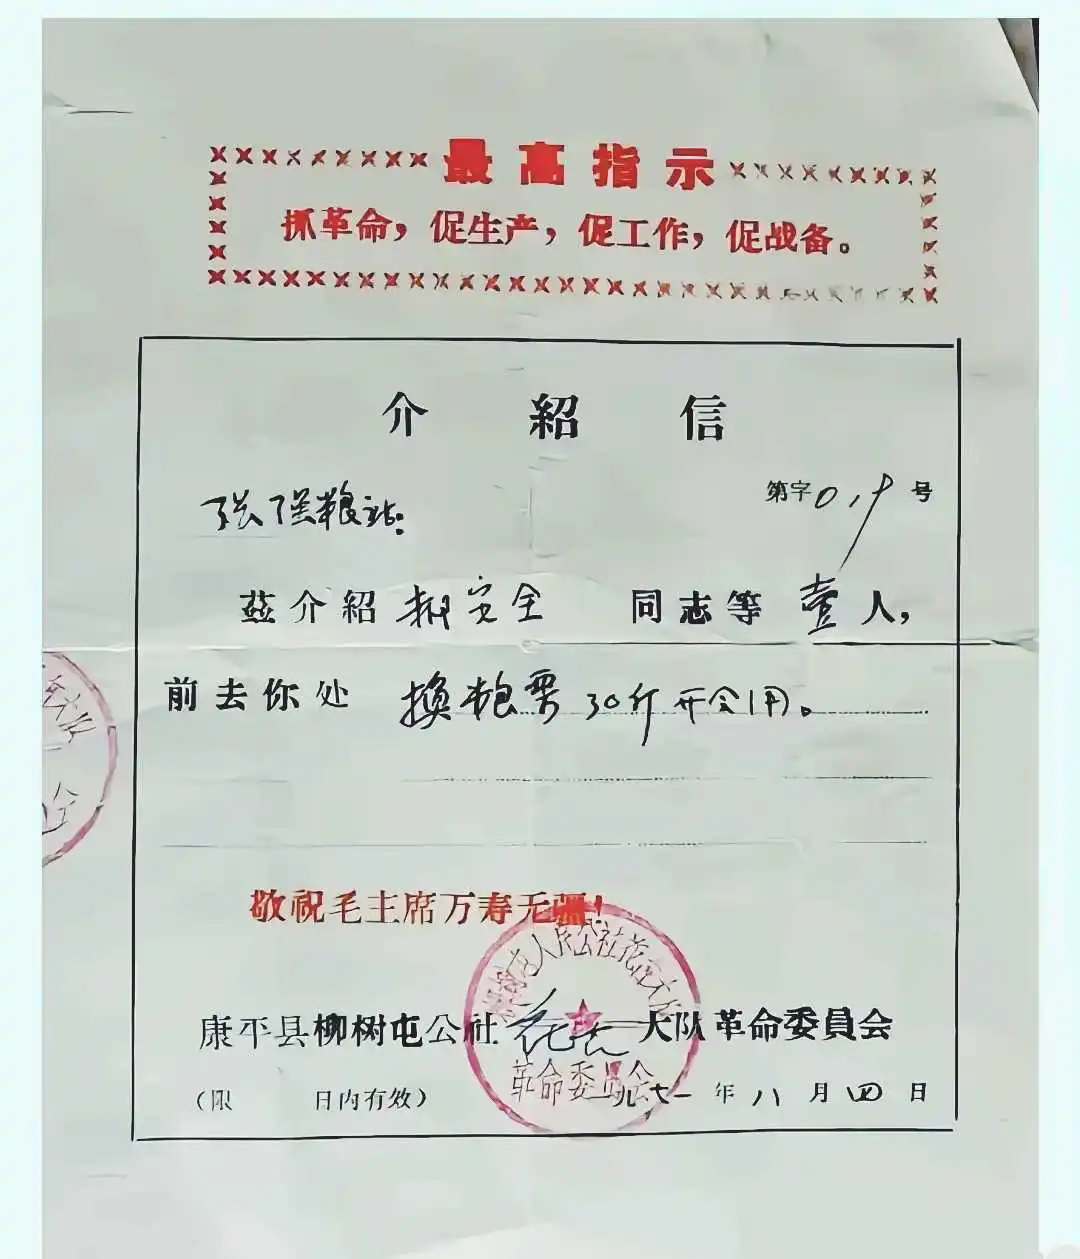 最高指示
抓革命，促生产，促工作，促战备。
介紹信
第字019号
张强粮站：
茲介紹 安全 同志等壹人，
前去你处 换粮票30斤开会用。
敬祝毛主席万寿无疆！
柳树屯人民公社花大队
康平县柳树屯公社花大队革命委員会
革命委员会
（限 日内有效） 一九七一年八月四日
大队
会